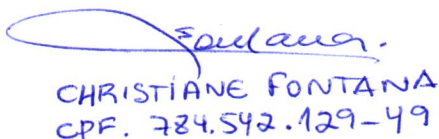 Fontana.
CHRISTIANE FONTANA
CPF. 784.542.129-49